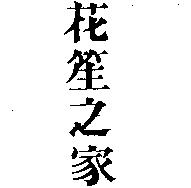 花笙之家